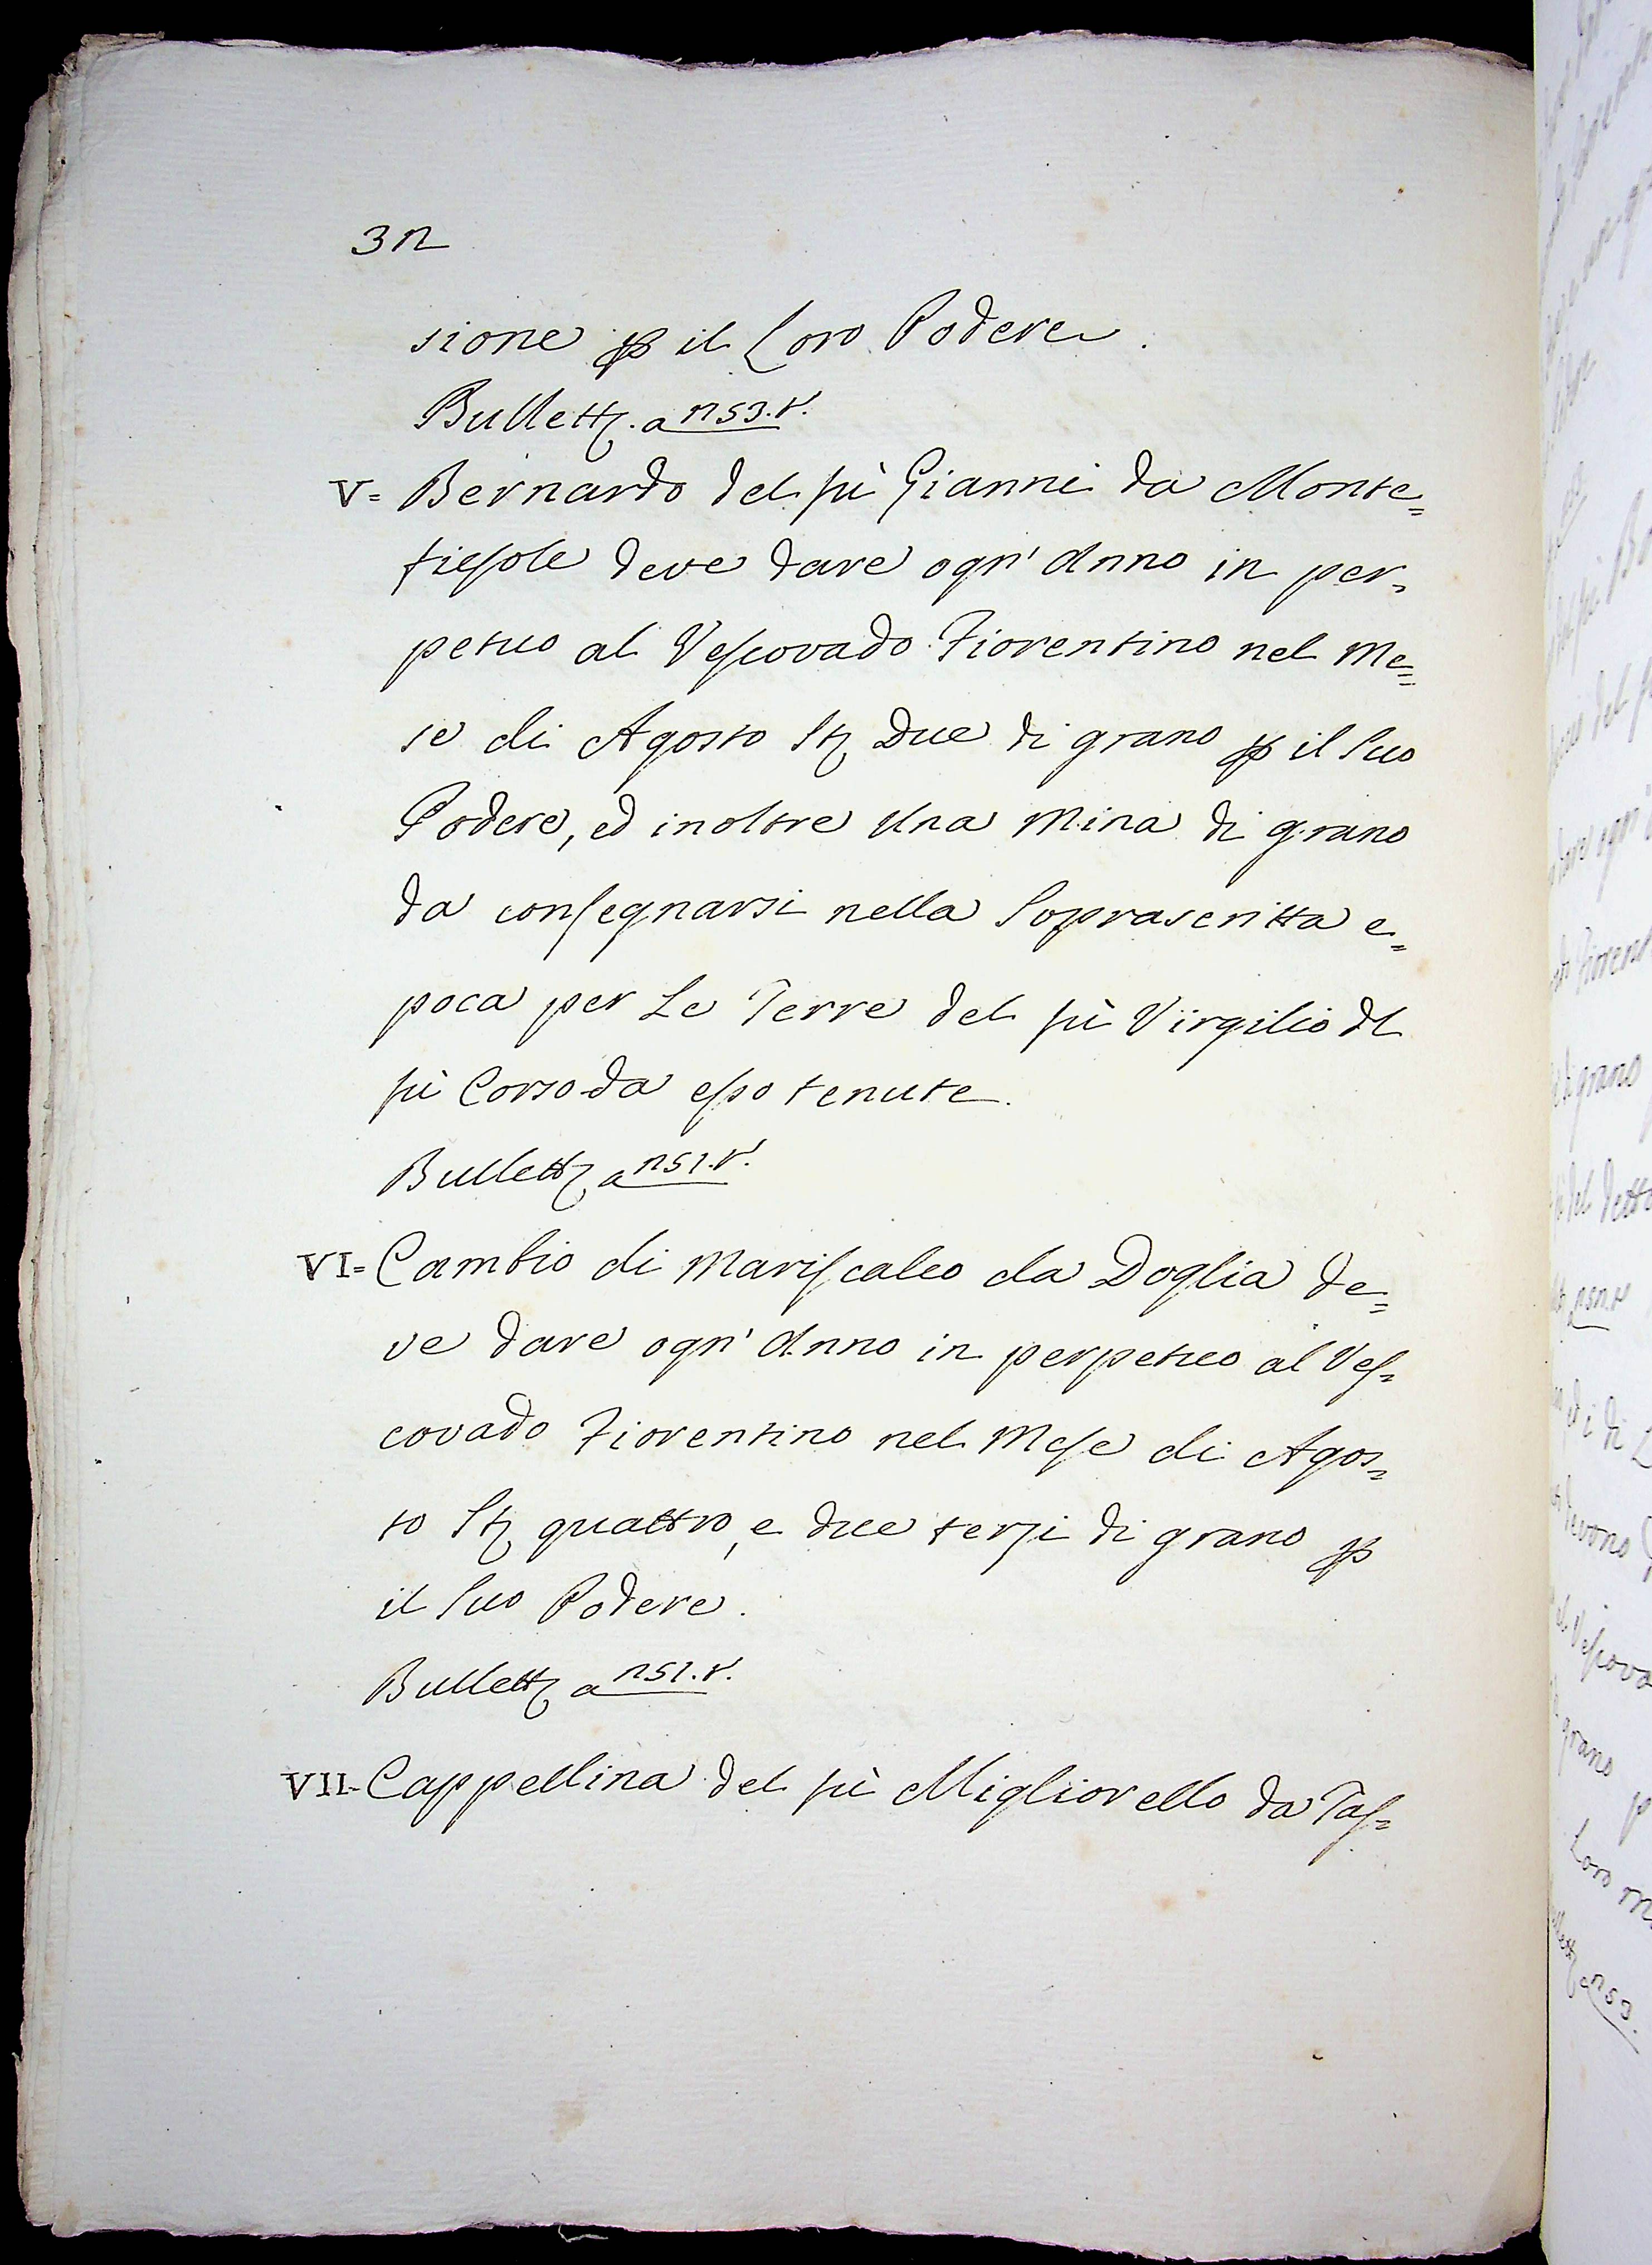 32
sione p il Loro Podere.
Bullett. a 253.v.
V= Bernardo del fù Gianni da Monte=
fiesole deve dare ogn' Anno in per=
petuo al Vescovado Fiorentino nel Me=
se di Agosto St Due di grano p il Suo
Podere, ed inoltre Una Mina di grano
da consegnarsi nella Soprascritta e=
poca per Le Terre del fù Virgilio dl
fù Corso da esso tenute.
Bullett a 251.v.
VI= Cambio di Mariscalco da Doglia de=
ve dare ogn' Anno in perpetuo al Ves=
covado Fiorentino nel Mese di Agos=
to St quattro, e due terzi di grano p
il Suo Podere.
Bullett a 251.v.
VII= Cappellina del fù Migliorello da Tas=